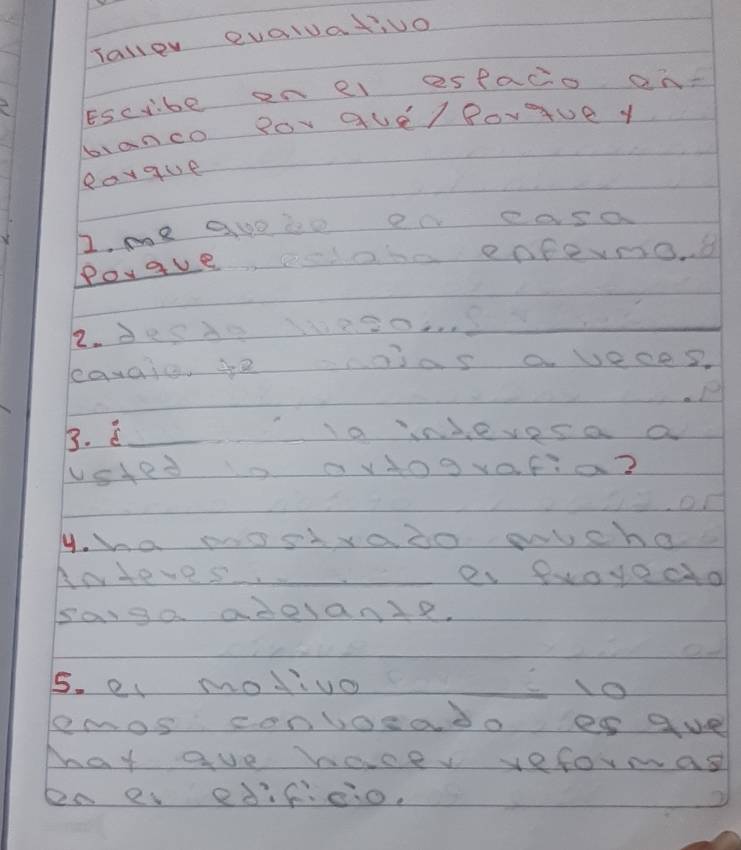 Taller evaluativo
Escribe en el espacio en
blanco por qué / porque y
porque
1. me quede en casa
porque estaba enfermo.
2. desde luego...
caraio, te a veces.
3. ¿ le interesa a
usted la artografia?
4. ha mostrado mucho
interes. el proyecto
salga adelante.
5. el motivo lo
emos conbocado es que
hay que hacer reformas
en el edificio.